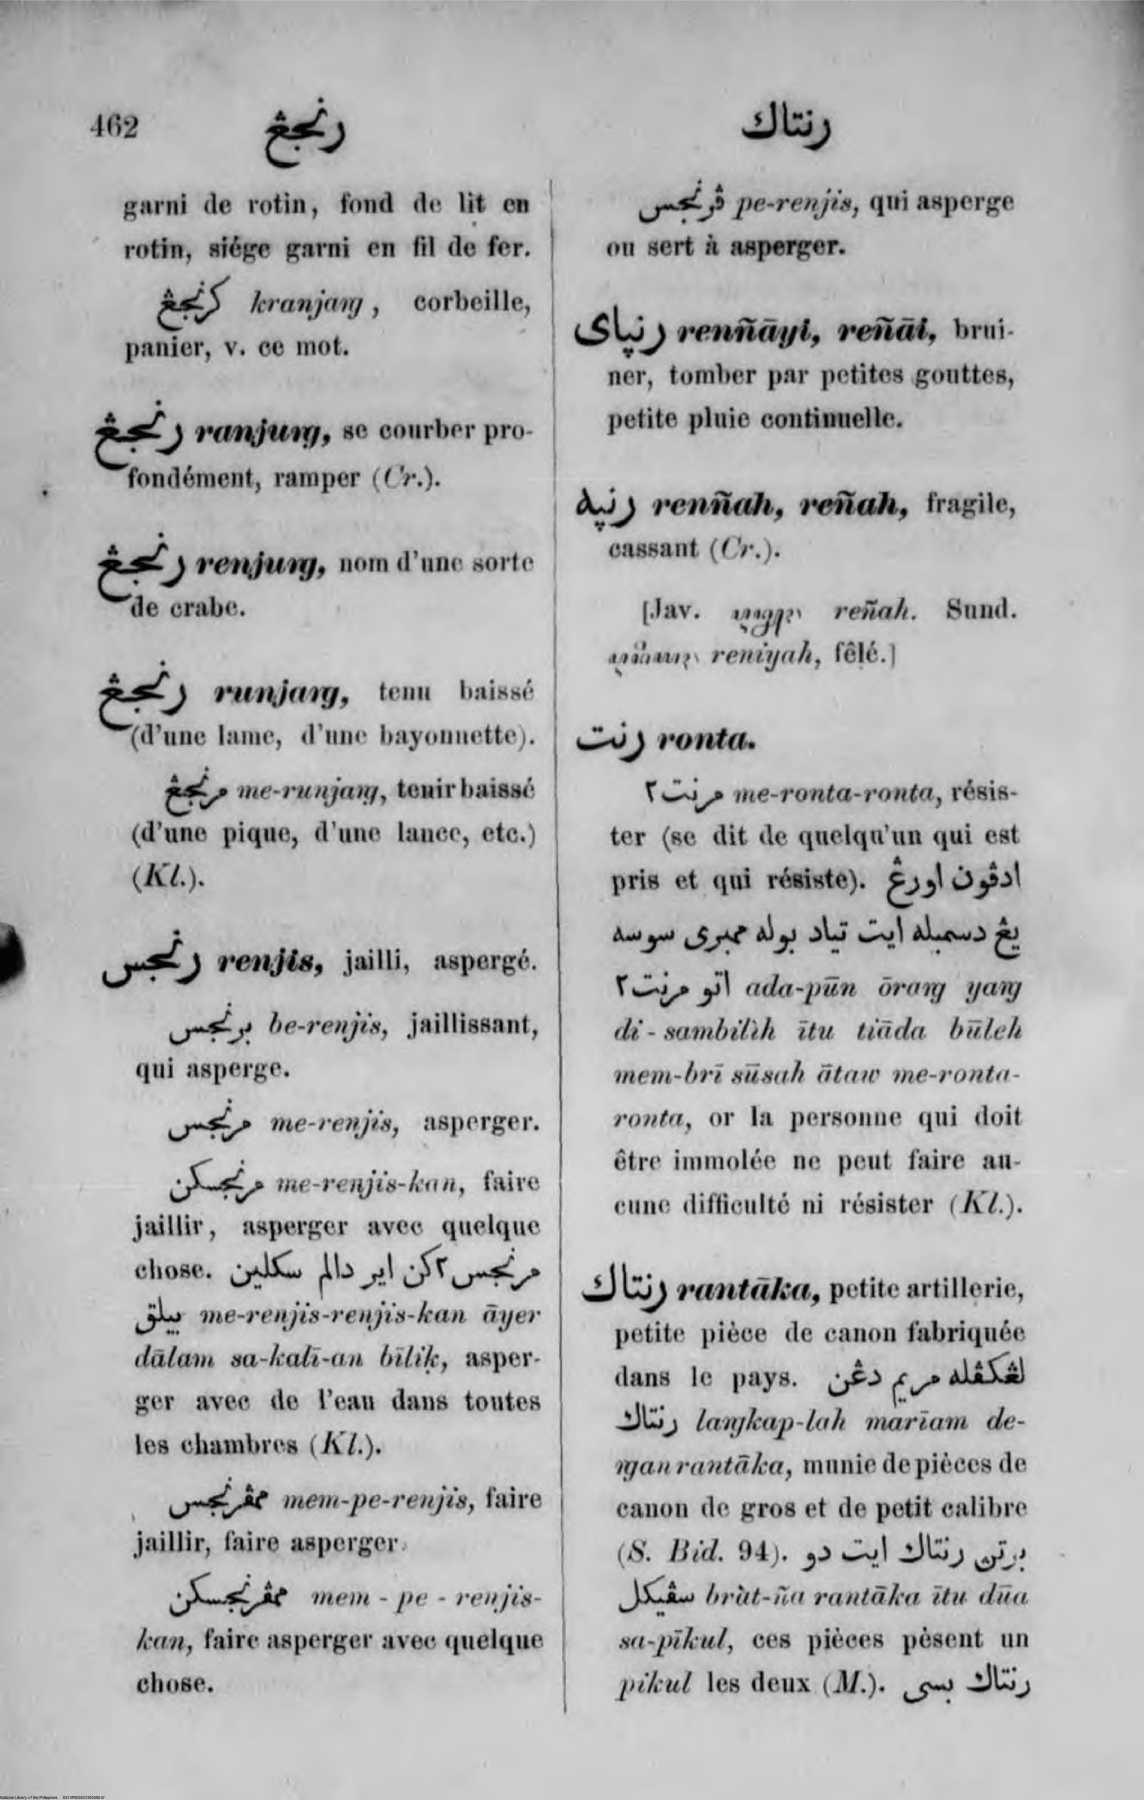 462
رنجڠ
رنتاك
garni de rotin, fond de lit en
rotin, siége garni en fil de fer.
كرنجڠ kranjaŋ, corbeille,
panier, v. ce mot.
رنجڠ ranjuŋ, se courber pro-
fondément, ramper (Cr.).
رنجڠ renjuŋ, nom d'une sorte
de crabe.
رنجڠ runjaŋ, tenu baissé
(d'une lame, d'une bayonnette).
مرنجڠ me-runjaŋ, tenir baissé
(d'une pique, d'une lance, etc.)
(Kl.).
رنجس renjis, jailli, aspergé.
برنجس be-renjis, jaillissant,
qui asperge.
مرنجس me-renjis, asperger.
مرنجسكن me-renjis-kan, faire
jaillir, asperger avec quelque
chose. مرنجس٢كن اير دالم سكلين
بيلق me-renjis-renjis-kan āyer
dālam sa-kalī-an bīliḳ, asper-
ger avec de l'eau dans toutes
les chambres (Kl.).
ممڤرنجس mem-pe-renjis, faire
jaillir, faire asperger.
ممڤرنجسكن mem-pe-renjis-
kan, faire asperger avec quelque
chose.
ڤرنجس pe-renjis, qui asperge
ou sert à asperger.
رنپاى renñāyi, reñāi, brui-
ner, tomber par petites gouttes,
petite pluie continuelle.
رنپه renñah, reñah, fragile,
cassant (Cr.).
[Jav. reñah. Sund.
reniyah, fêlé.]
رنت ronta.
مرنت٢ me-ronta-ronta, résis-
ter (se dit de quelqu'un qui est
pris et qui résiste). ادڤون اورڠ
يڠ دسمبله ايت تياد بوله ممبرى سوسه
اتو مرنت٢ ada-pūn ōraŋ yaŋ
di-sambilih ītu tiāda būleh
mem-brī sūsah ātaw me-ronta-
ronta, or la personne qui doit
être immolée ne peut faire au-
cune difficulté ni résister (Kl.).
رنتاك rantāka, petite artillerie,
petite pièce de canon fabriquée
dans le pays. لڠكڤله مريم دڠن
رنتاك laŋkap-lah marīam de-
ŋan rantāka, munie de pièces de
canon de gros et de petit calibre
(S. Bid. 94). برتڽ رنتاك ايت دو
سڤيكل bràt-ña rantāka ītu dūa
sa-pīkul, ces pièces pèsent un
pikul les deux (M.). رنتاك بسى